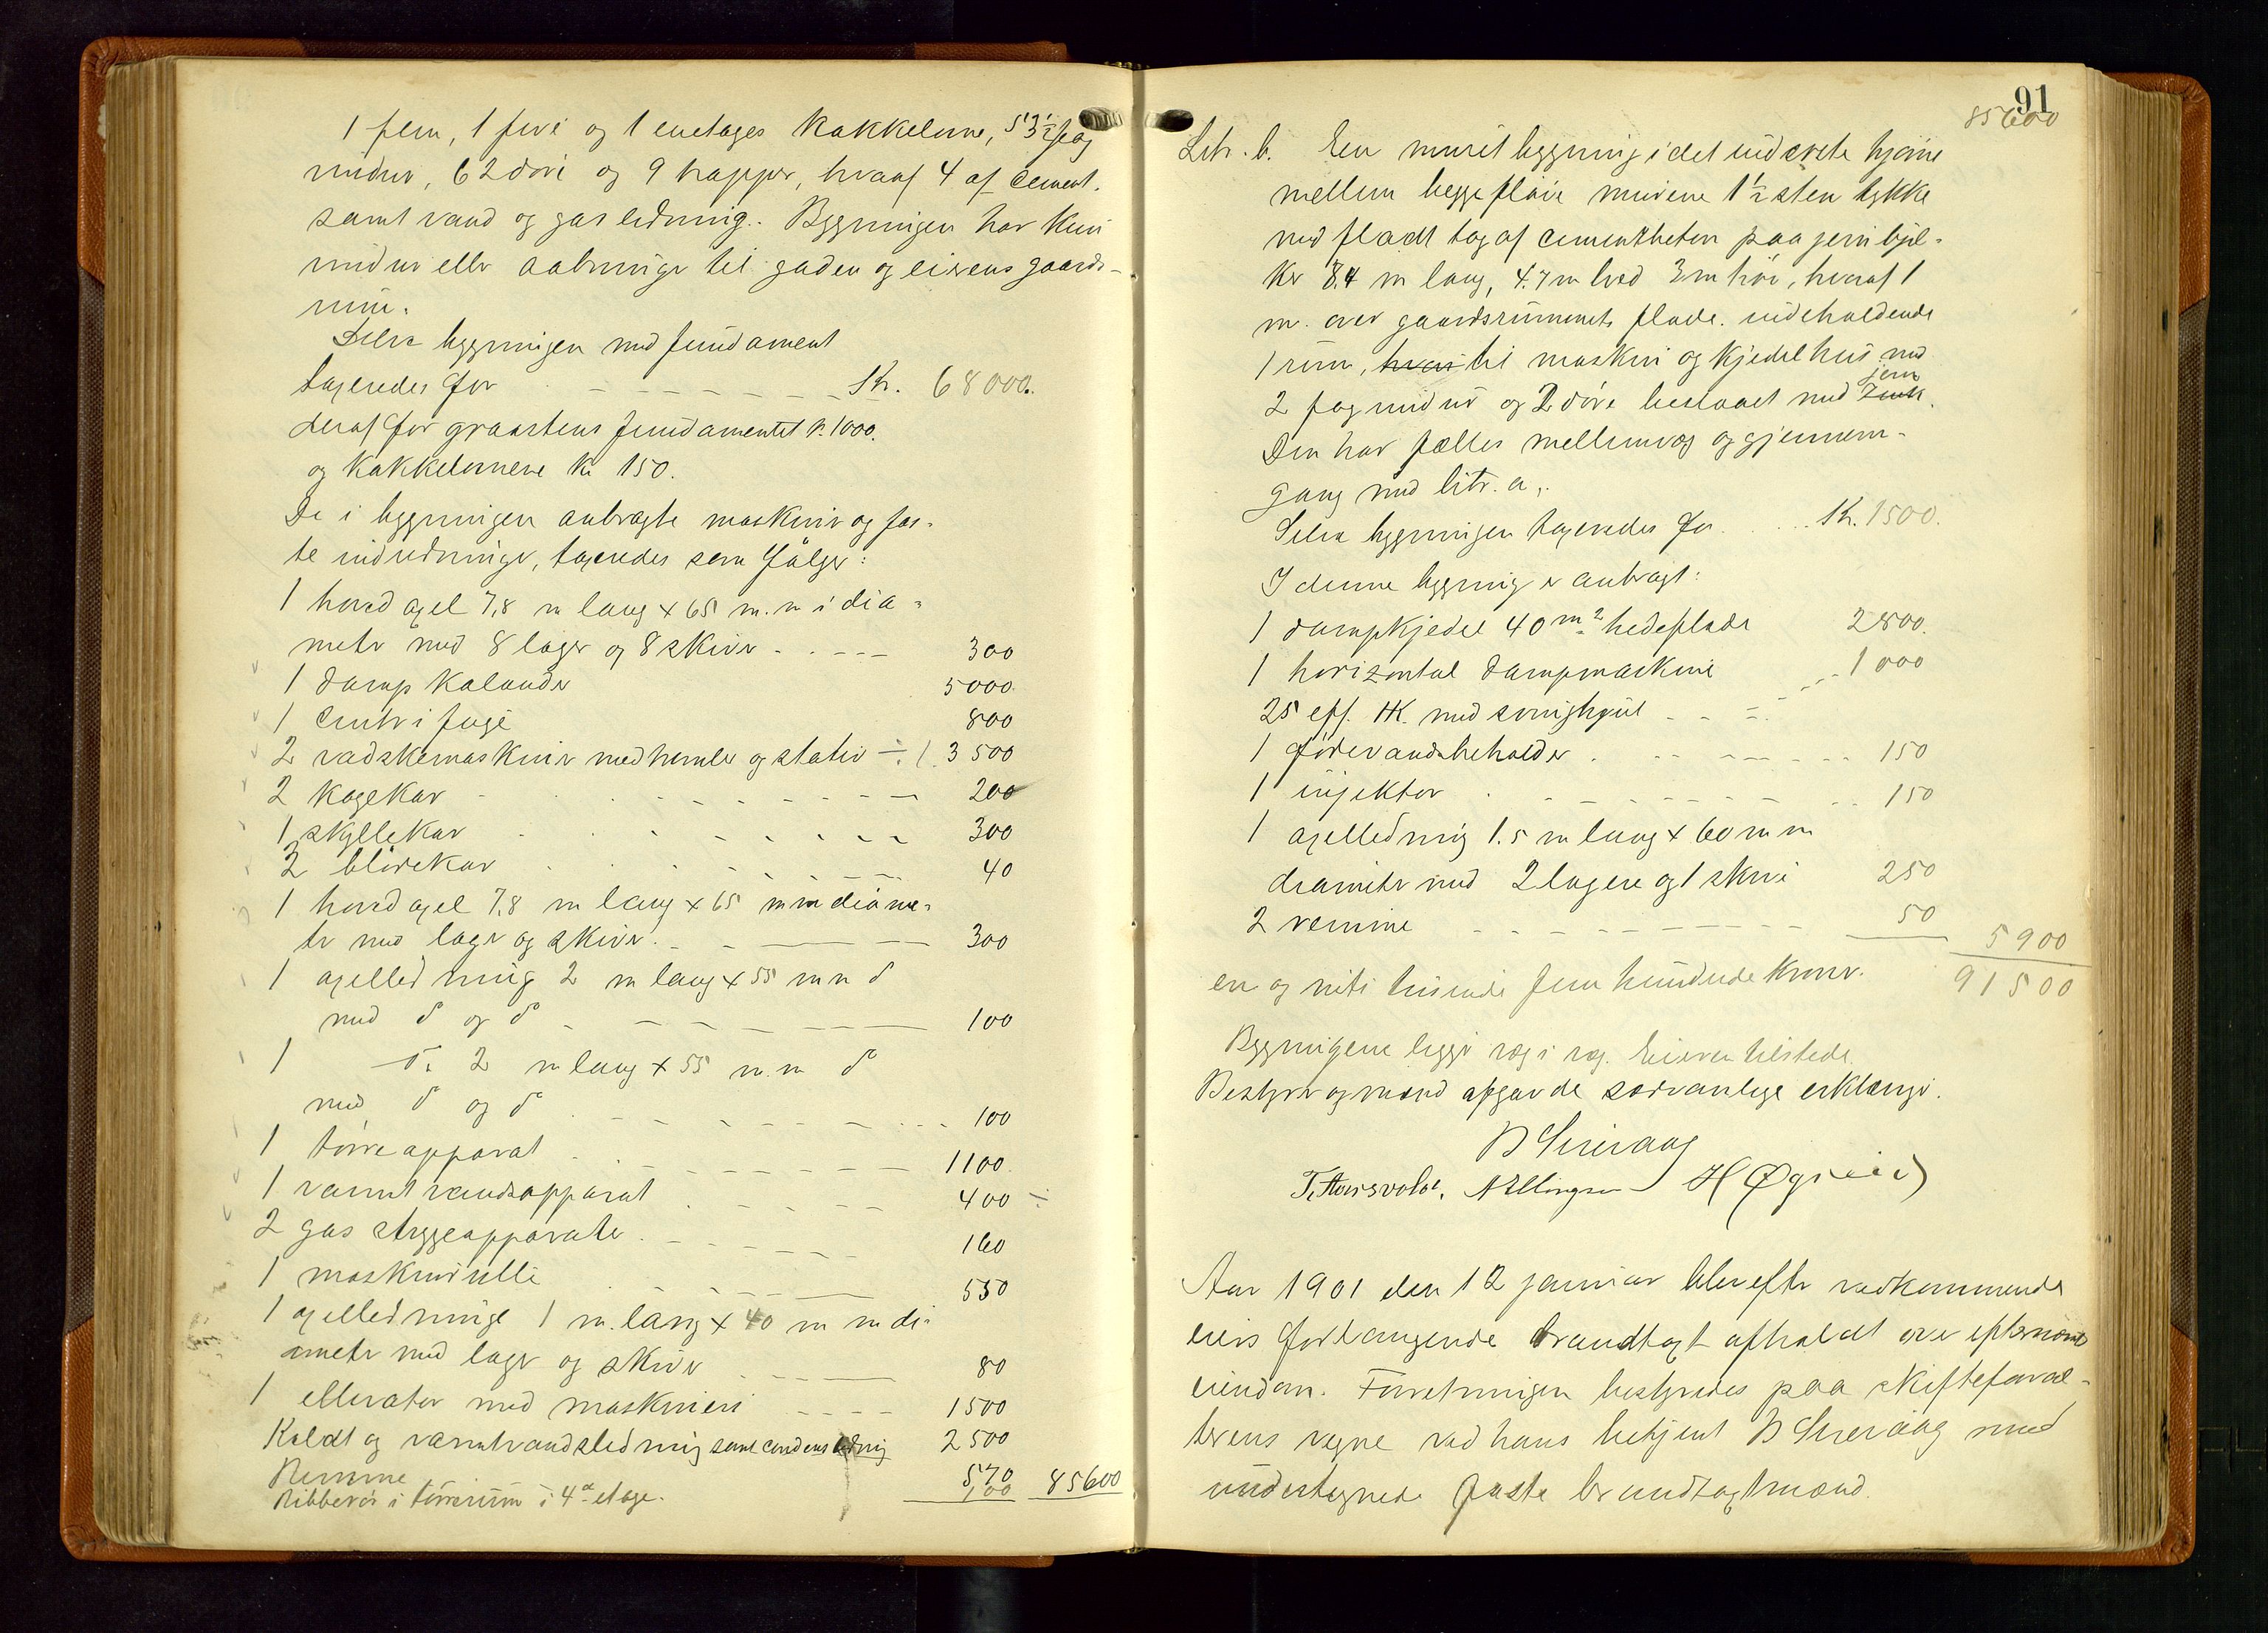 1 fem, 1 fire og 1 enetages kakkelovne, 53½ fag
vinduer, 62 döre og 9 trapper, hvoraf 4 af cement.
samt vand og gasledning. Bygningen har kun
vinduer eller aabninger til gaden og eierens gaards-
rum.
Selve bygningen med fundament
taxeredes for - - - - - - Kr. 68000.
deraf for graastens fundamentet kr. 1000.
og kakkelovnene kr 150.
De i bygningen anbragte maskiner og fas-
te indredninger, taxeredes som fölger:
1 hovedaxel 7,8 m lang x 65 m.m i dia-
meter med 8 lager og 8 skiver - - - - 300
1 damp kalander 5000
1 Centrifuge 800
2 vadskemaskiner med hemler og stativ ÷ 3500
2 kogekar - - - - - - - 200
1 skyllekar - - - - - 300
2 blödekar - - - - - 40
1 hovedaxel 7,8 m lang x 65 m m diame-
ter med lager og skiver - - - 300
1 axelledning 2 m lang x 55 m m do
med do og do - - - - - 100
1 do 2 m lang x 55 m.m do
med do og do - - - - - 100
1 törreapparat - - - - - 1100
1 varmtvandsapparat - - - - 400 ÷
2 gas strygeapparater - - - - 160
1 maskinrulle - - - - 550
1 axelledninge 1 m. lang x 40 m m di-
ameter med lager og skiver - - - 80
1 ellevator med maskineri - - - - 1500
Koldt og varmtvandsledning samt condensledning 2500
Remme 570
Ribberör i törrerum i 4de etage. 100 85600
91
85600
Litr. b. En muret bygning i det inderste hjörne
mellem begge flöie murene 1½ sten tykke
med fladt tag af cementbeton paa jernbjel-
ker 8.4 m lang, 4.7 m bred 3 m höi, hvoraf 1
m. over gaardsrummets flade. indeholdende
1 rum, hvor til maskin og kjedelhus med
2 fag vinduer og 2 döre beslaaet med Zink jern.
Den har fælles mellemvæg og gjennem-
gang med litr. a.
Selve bygningen taxeredes for . . . . Kr. 1500.
I denne bygning er anbragt:
1 dampkjedel 40 m² hedeflade 2800.
1 horizontal dampmaskine - - - 1000
25 eff. HK. med svinghjul - - -
1 födevandsbeholder - - - - - 150
1 injektor - - - - - - 150
1 axelledning 1.5 m lang x 60 m m
diameter med 2 lagere og 1 skive 250
2 remme - - - - - - 50 5900
en og niti tusinde fem hundrede kroner. 91500
Bygningene ligger væg i væg. Eieren tilstede.
Bestyrer og mænd afgav de sedvanlige erklæringer.
B Sveraag
T. Aarsvold. N Ellingsen H Øgreid
Aar 1901 den 12 januar blev efter vedkommende
eiers forlangende brandtaxt afholdt over efternævnte
eiendom. Forretningen bestyredes paa skifteforval-
terens vegne ved hans betjent B Sveraag med
undertegnede faste brandtaxtmænd.